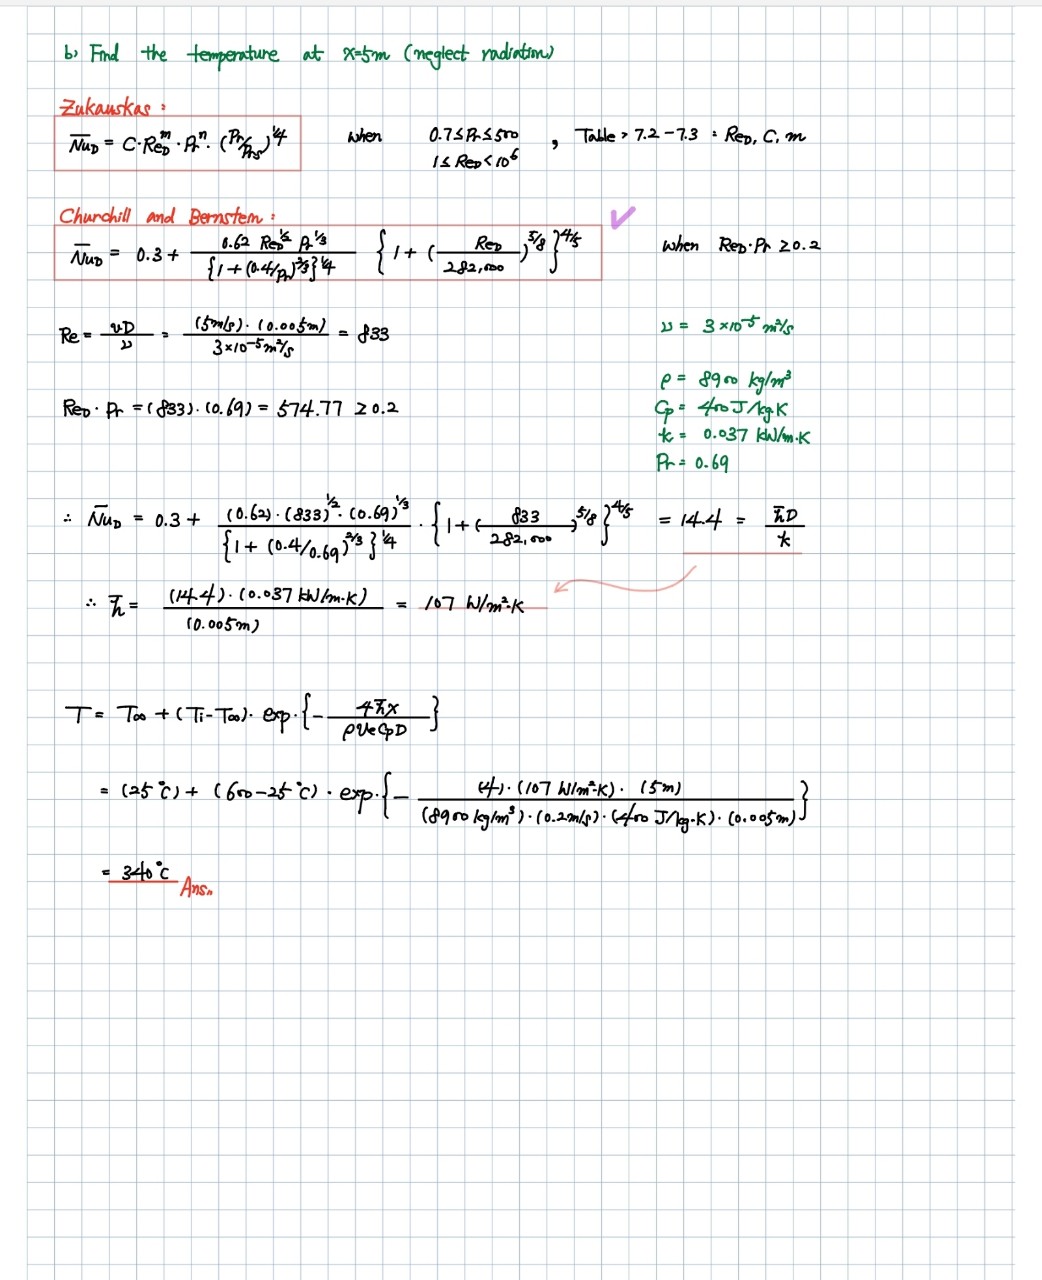 b) Find the temperature at x=5m (neglect radiation)
Zukauskas :
N̄u_D = C·Re_D^m · Pr^n · (Pr/Pr_s)^1/4 when 0.7 ≤ Pr ≤ 500 , Table > 7.2 - 7.3 : Re_D, C, m
1 ≤ Re_D < 10^6
Churchill and Bernstein :
N̄u_D = 0.3 + 0.62 Re_D^1/2 Pr^1/3 / {1 + (0.4/Pr)^2/3}^1/4 {1 + (Re_D / 282,000)^5/8}^4/5 ✓ when Re_D·Pr ≥ 0.2
Re = vD / ν = (5m/s)·(0.005m) / 3×10^-5 m²/s = 833
ν = 3×10^-5 m²/s
ρ = 8900 kg/m³
Re_D · Pr = (833)·(0.69) = 574.77 ≥ 0.2
Cp = 400 J/kg·K
k = 0.037 kW/m·K
Pr = 0.69
∴ N̄u_D = 0.3 + (0.62)·(833)^1/2·(0.69)^1/3 / {1 + (0.4/0.69)^2/3}^1/4 · {1 + (833 / 282,000)^5/8}^4/5 = 14.4 = h̄D / k
∴ h̄ = (14.4)·(0.037 kW/m·K) / (0.005m) = 107 W/m²·K
T = T∞ + (Ti - T∞)· exp·{- 4h̄x / ρVeCpD}
= (25°C) + (600-25°C) · exp·{- (4)·(107 W/m²·K)·(5m) / (8900 kg/m³)·(0.2m/s)·(400 J/kg·K)·(0.005m)}
= 340°C Ans.